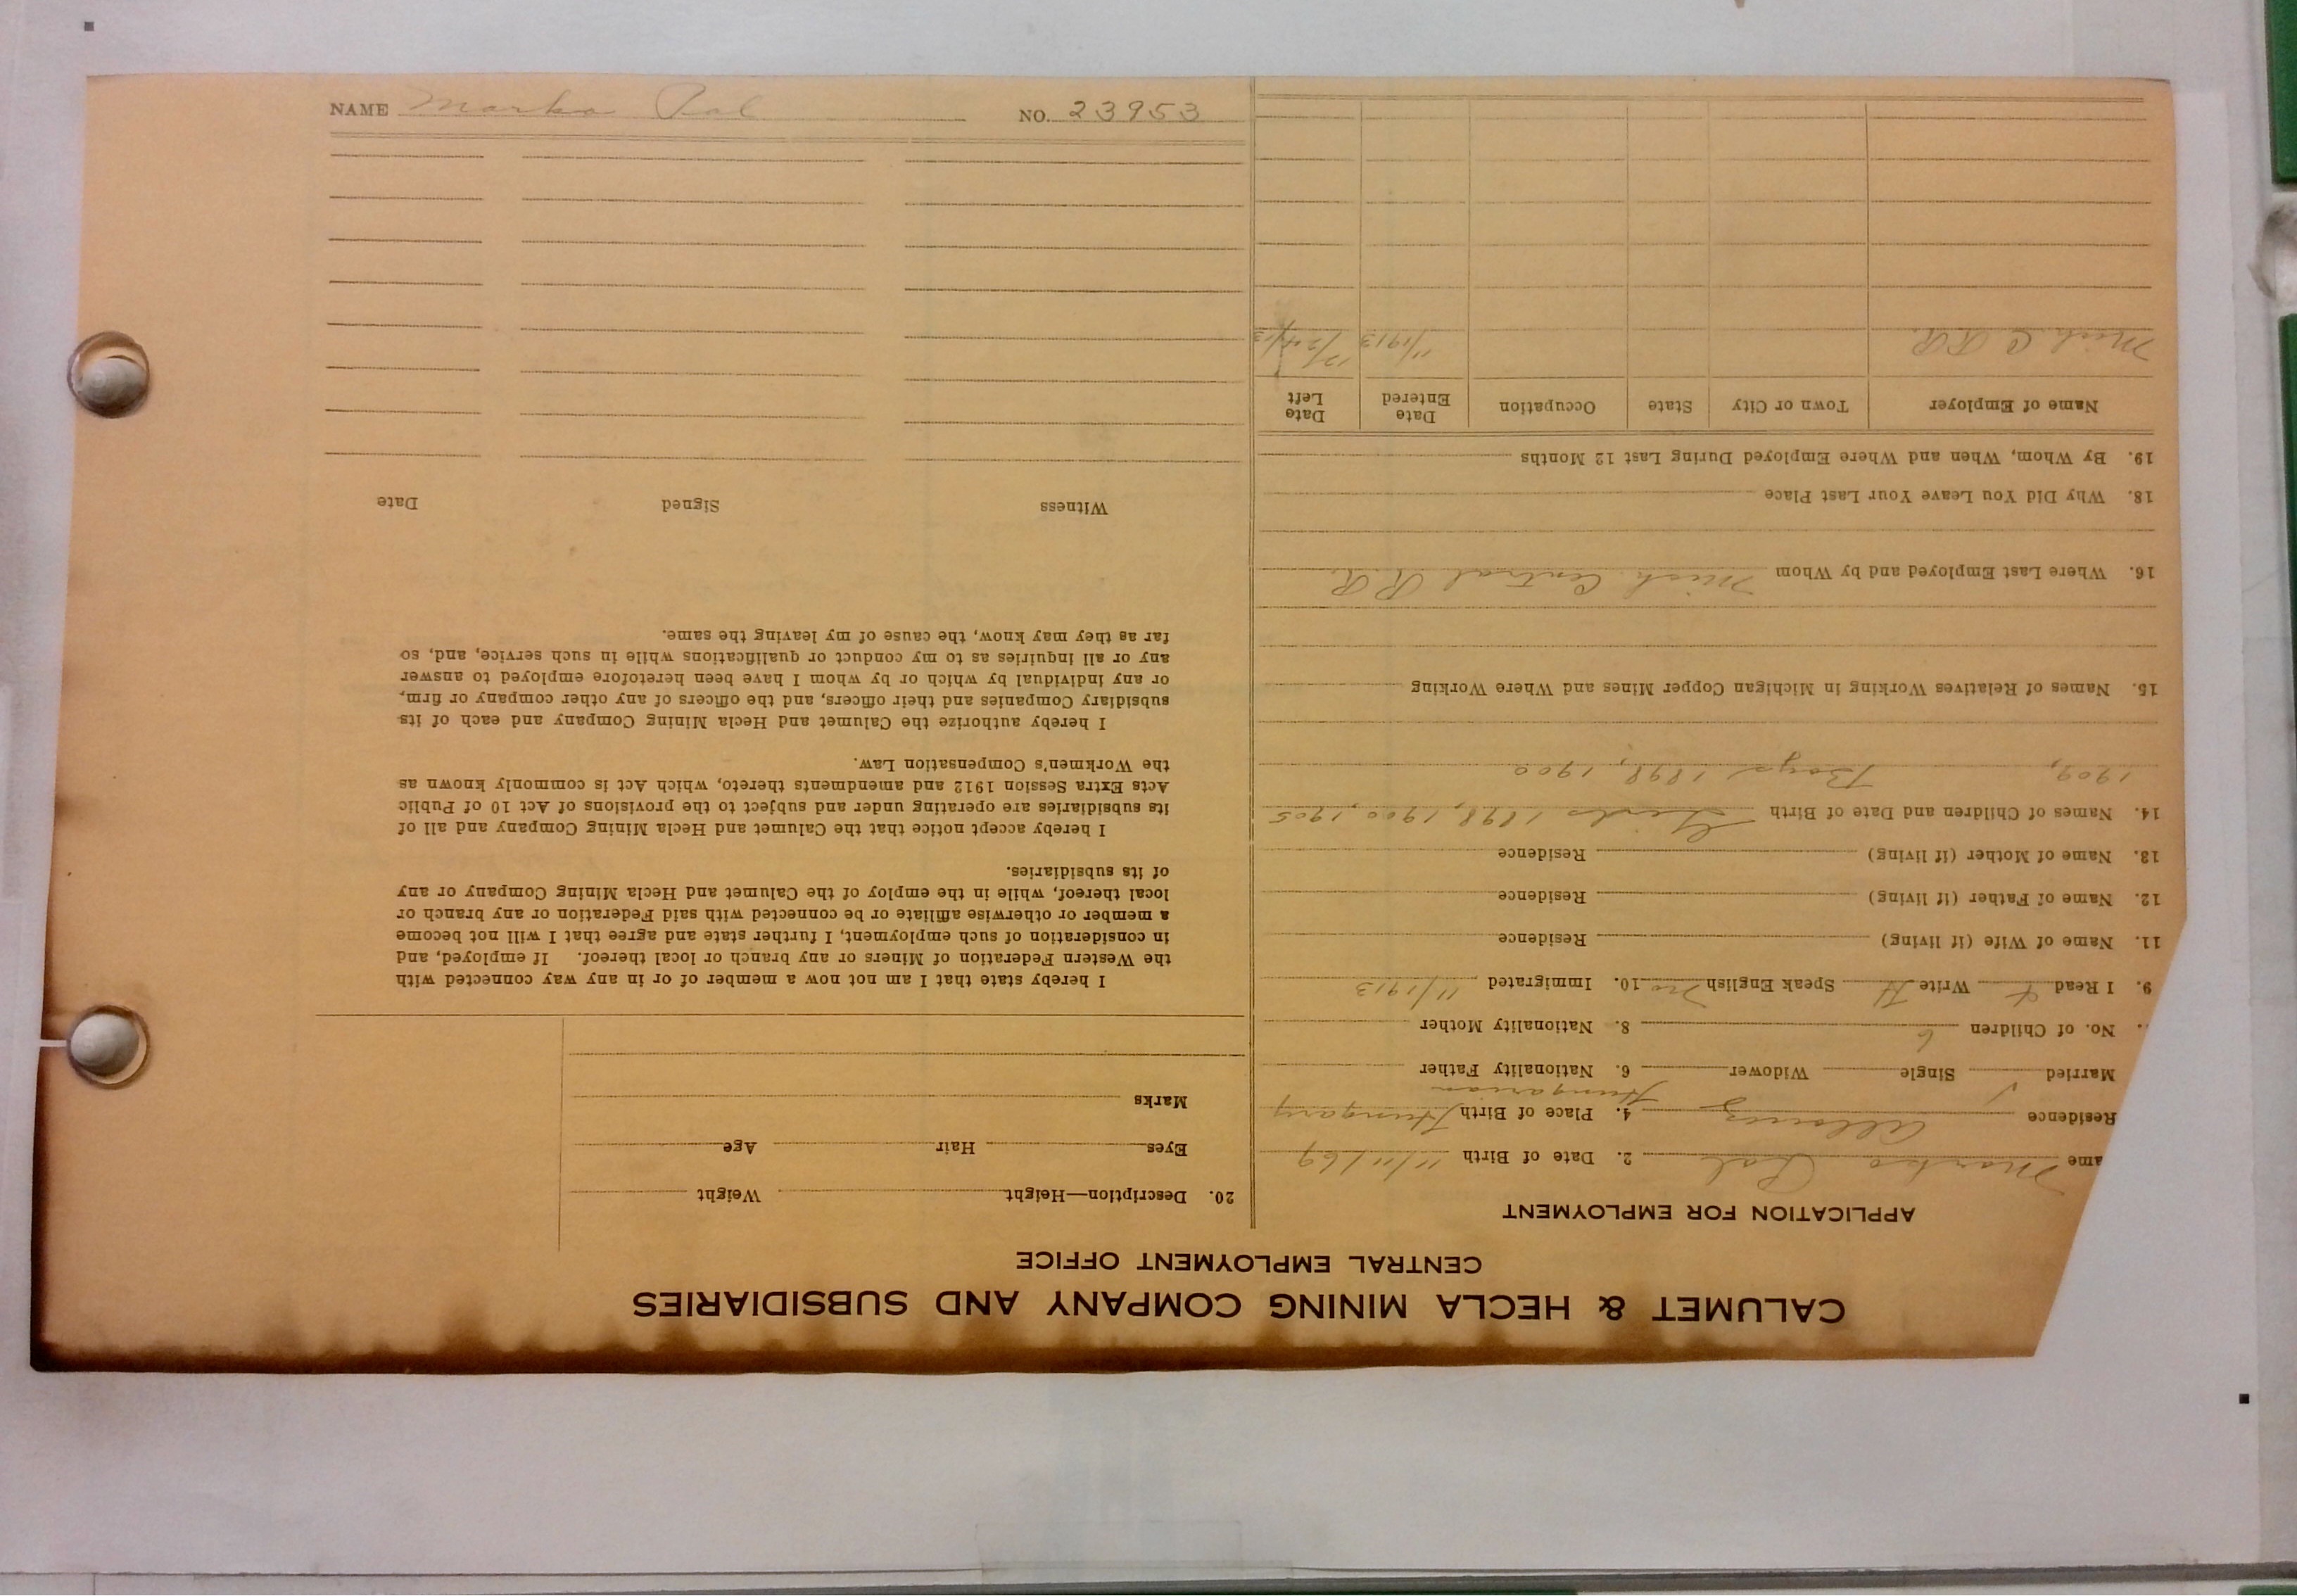 NAME Marko Pal NO. 23953
CALUMET & HECLA MINING COMPANY AND SUBSIDIARIES
CENTRAL EMPLOYMENT OFFICE
APPLICATION FOR EMPLOYMENT
ame Marko Pal 2. Date of Birth 11/11/69
Residence Allouez 4. Place of Birth Hungary
Hungarian
Married Single Widower 6. Nationality Father
No. of Children 6 8. Nationality Mother
9. I Read Write Speak English no 10. Immigrated 11/1913
11. Name of Wife (if living) Residence
12. Name of Father (if living) Residence
13. Name of Mother (if living) Residence
14. Names of Children and Date of Birth Girls 1898, 1900, 1905
1909, Boys 1898, 1900
15. Names of Relatives Working in Michigan Copper Mines and Where Working
16. Where Last Employed and by Whom Mich Central R.R.
18. Why Did You Leave Your Last Place
19. By Whom, When and Where Employed During Last 12 Months
Name of Employer Town or City State Occupation Date Entered Date Left
Mich. C. R.R. 11/1913
20. Description—Height Weight
Eyes Hair Age
Marks
I hereby state that I am not now a member of or in any way connected with
the Western Federation of Miners or any branch or local thereof. If employed, and
in consideration of such employment, I further state and agree that I will not become
a member or otherwise affiliate or be connected with said Federation or any branch or
local thereof, while in the employ of the Calumet and Hecla Mining Company or any
of its subsidiaries.
I hereby accept notice that the Calumet and Hecla Mining Company and all of
its subsidiaries are operating under and subject to the provisions of Act 10 of Public
Acts Extra Session 1912 and amendments thereto, which Act is commonly known as
the Workmen's Compensation Law.
I hereby authorize the Calumet and Hecla Mining Company and each of its
subsidiary Companies and their officers, and the officers of any other company or firm,
or any individual by which or by whom I have been heretofore employed to answer
any or all inquiries as to my conduct or qualifications while in such service, and, so
far as they may know, the cause of my leaving the same.
Witness Signed Date